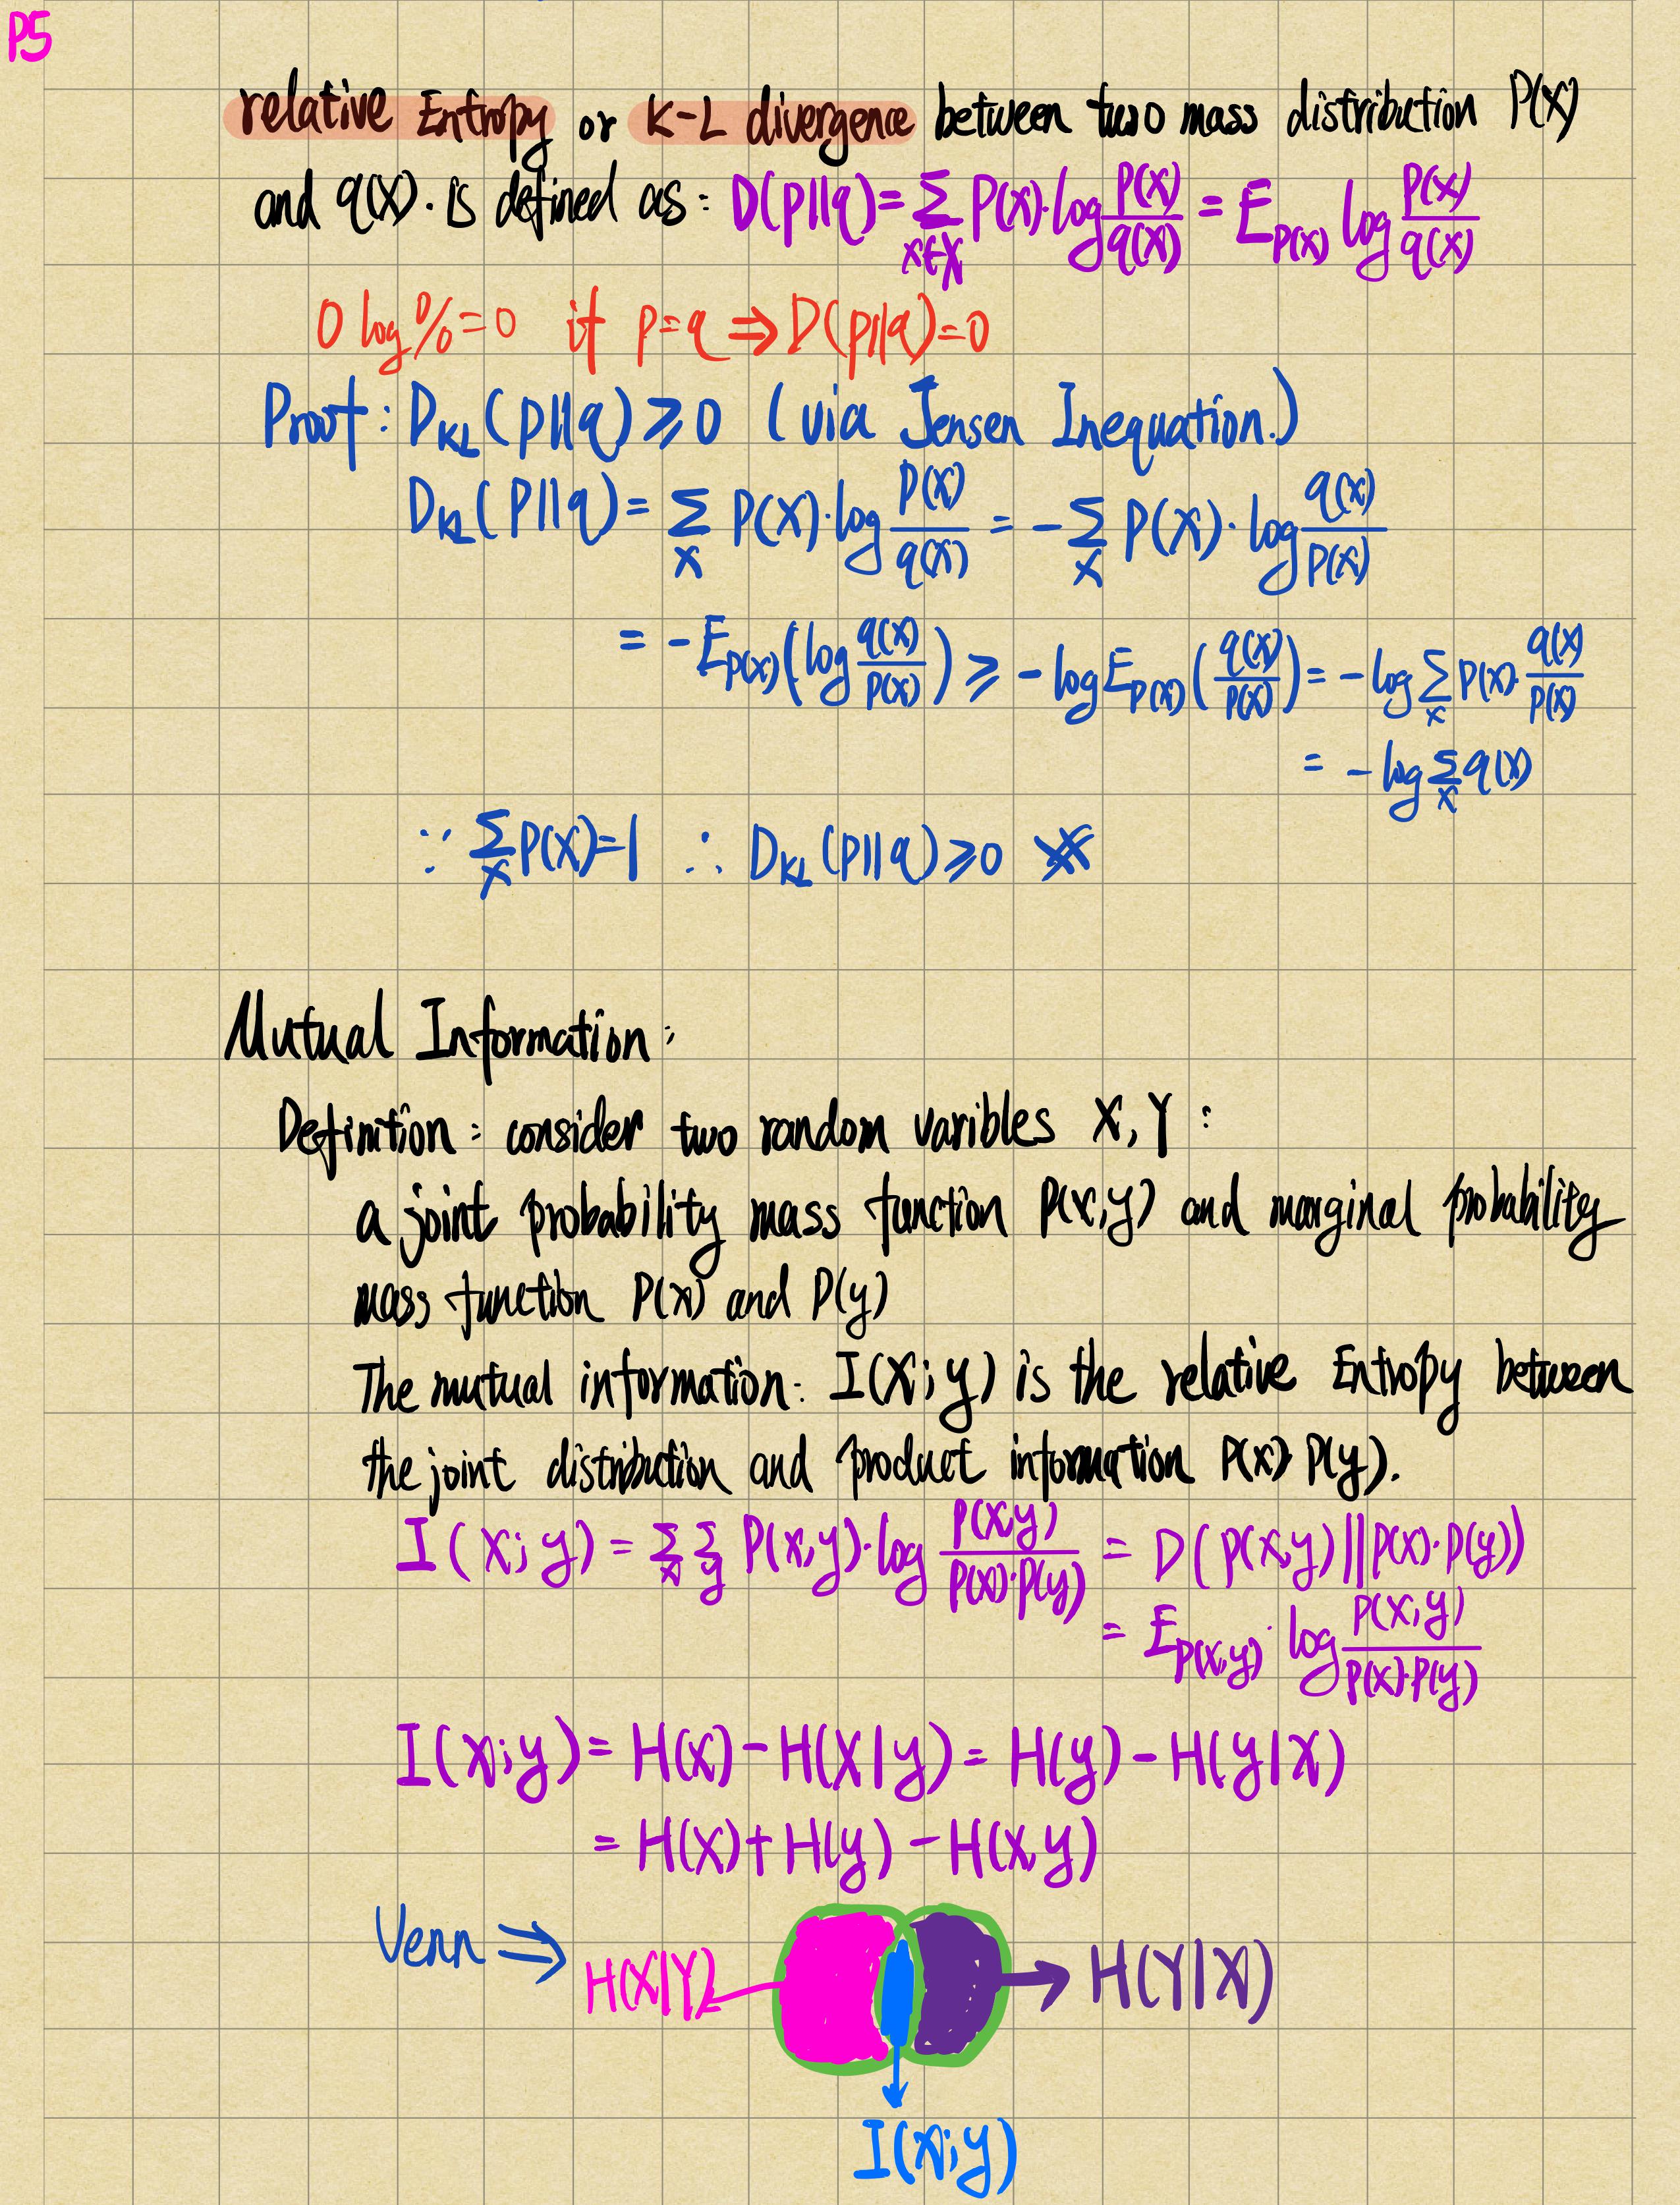 P5
relative Entropy or K-L divergence between two mass distribution P(x)
and q(x). is defined as: D(p||q)=∑_{x∈X} P(x)·log P(x)/q(x) = E_{P(x)} log P(x)/q(x)
0 log 0/0=0 if p=q ⇒ D(p||q)=0
Proof: D_{KL}(p||q)≥0 (via Jensen Inequation.)
D_{KL}(P||q)=∑_x P(x)·log P(x)/q(x) = -∑_x P(x)·log q(x)/P(x)
= -E_{P(x)}(log q(x)/P(x)) ≥ -log E_{P(x)}(q(x)/P(x)) = -log ∑_x P(x)·q(x)/P(x)
= -log ∑_x q(x)
∵ ∑_x P(x)=1 ∴ D_{KL}(p||q)≥0 ※
Mutual Information:
Definition: consider two random varibles X,Y:
a joint probability mass function P(x,y) and marginal probability
mass function P(x) and P(y)
The mutual information: I(X;y) is the relative Entropy between
the joint distribution and product information P(x)·P(y).
I(x;y)=∑_x ∑_y P(x,y)·log P(x,y)/P(x)·P(y) = D(P(x,y)||P(x)·P(y))
= E_{P(x,y)}·log P(x,y)/P(x)·P(y)
I(x;y)=H(x)-H(X|y)=H(y)-H(y|x)
=H(x)+H(y)-H(x,y)
Venn ⇒
H(X|Y)
H(Y|X)
I(x;y)